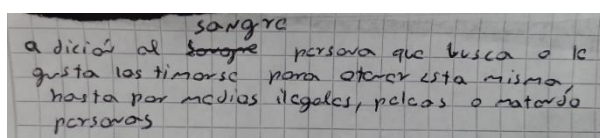 sangre
adición al persona que busca o le
gusta lastimarse para obtener esta misma,
hasta por medios ilegales, peleas o matando
personas